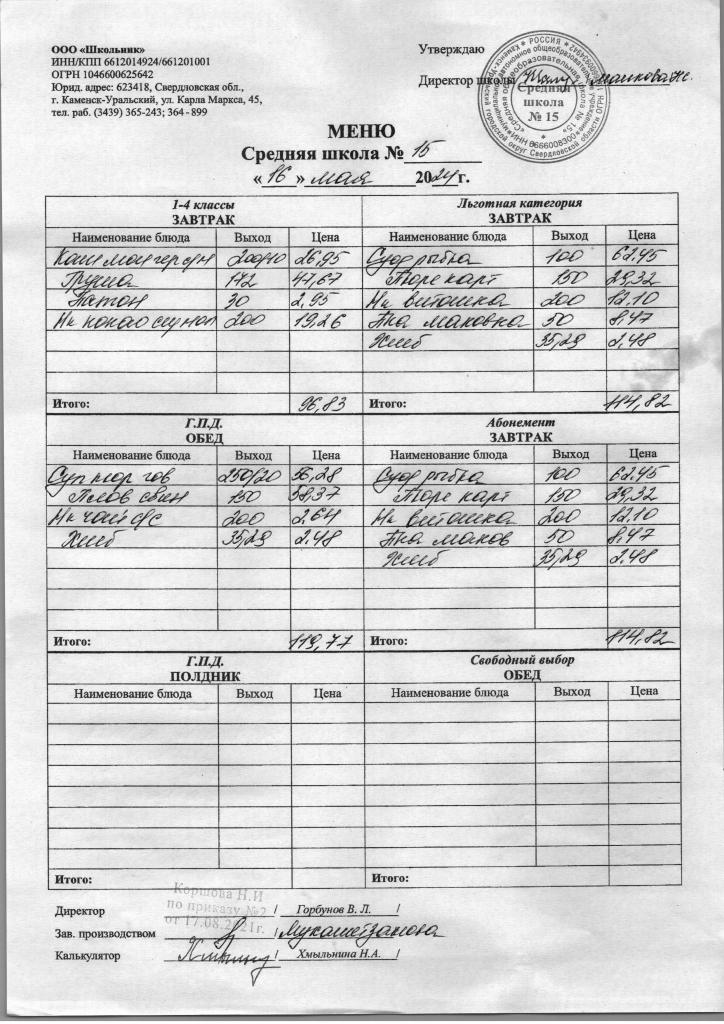 ООО «Школьник»
ИНН/КПП 6612014924/661201001
ОГРН 1046600625642
Юрид. адрес: 623418, Свердловская обл.,
г. Каменск-Уральский, ул. Карла Маркса, 45,
тел. раб. (3439) 365-243; 364 - 899
Утверждаю
Директор школы
Средняя
школа
№ 15
МЕНЮ
Средняя школа № 15
« 16 » мая 2024 г.
1-4 классы
ЗАВТРАК
Наименование блюда Выход Цена
200/10 26,95
Груша 172 47,67
Батон 30 2,95
Нк какао 200 19,26
Итого: 96,83
Льготная категория
ЗАВТРАК
Наименование блюда Выход Цена
рыбка 100 62.45
Пюре карт 150 29,32
Нк витошка 200 12.10
маковка 50 8,47
Хлеб 35,29 2,48
Итого: 114,82
Г.П.Д.
ОБЕД
Наименование блюда Выход Цена
Суп гов 250/20 56,28
Плов свин 150 58,37
Нк чай 200 2,64
Хлеб 35,29 2.48
Итого: 119,77
Абонемент
ЗАВТРАК
Наименование блюда Выход Цена
рыбка 100 62.45
Пюре карт 150 29,32
Нк витошка 200 12.10
маков 50 8,47
Хлеб 35,29 2.48
Итого: 114,82
Г.П.Д.
ПОЛДНИК
Наименование блюда Выход Цена
Итого:
Свободный выбор
ОБЕД
Наименование блюда Выход Цена
Итого:
Коршова Н.И
по приказу №2
от 17.08.2021г.
Директор / Горбунов В. Л. /
Зав. производством / Мухаметзянова
Калькулятор / Хмыльнина Н.А. /